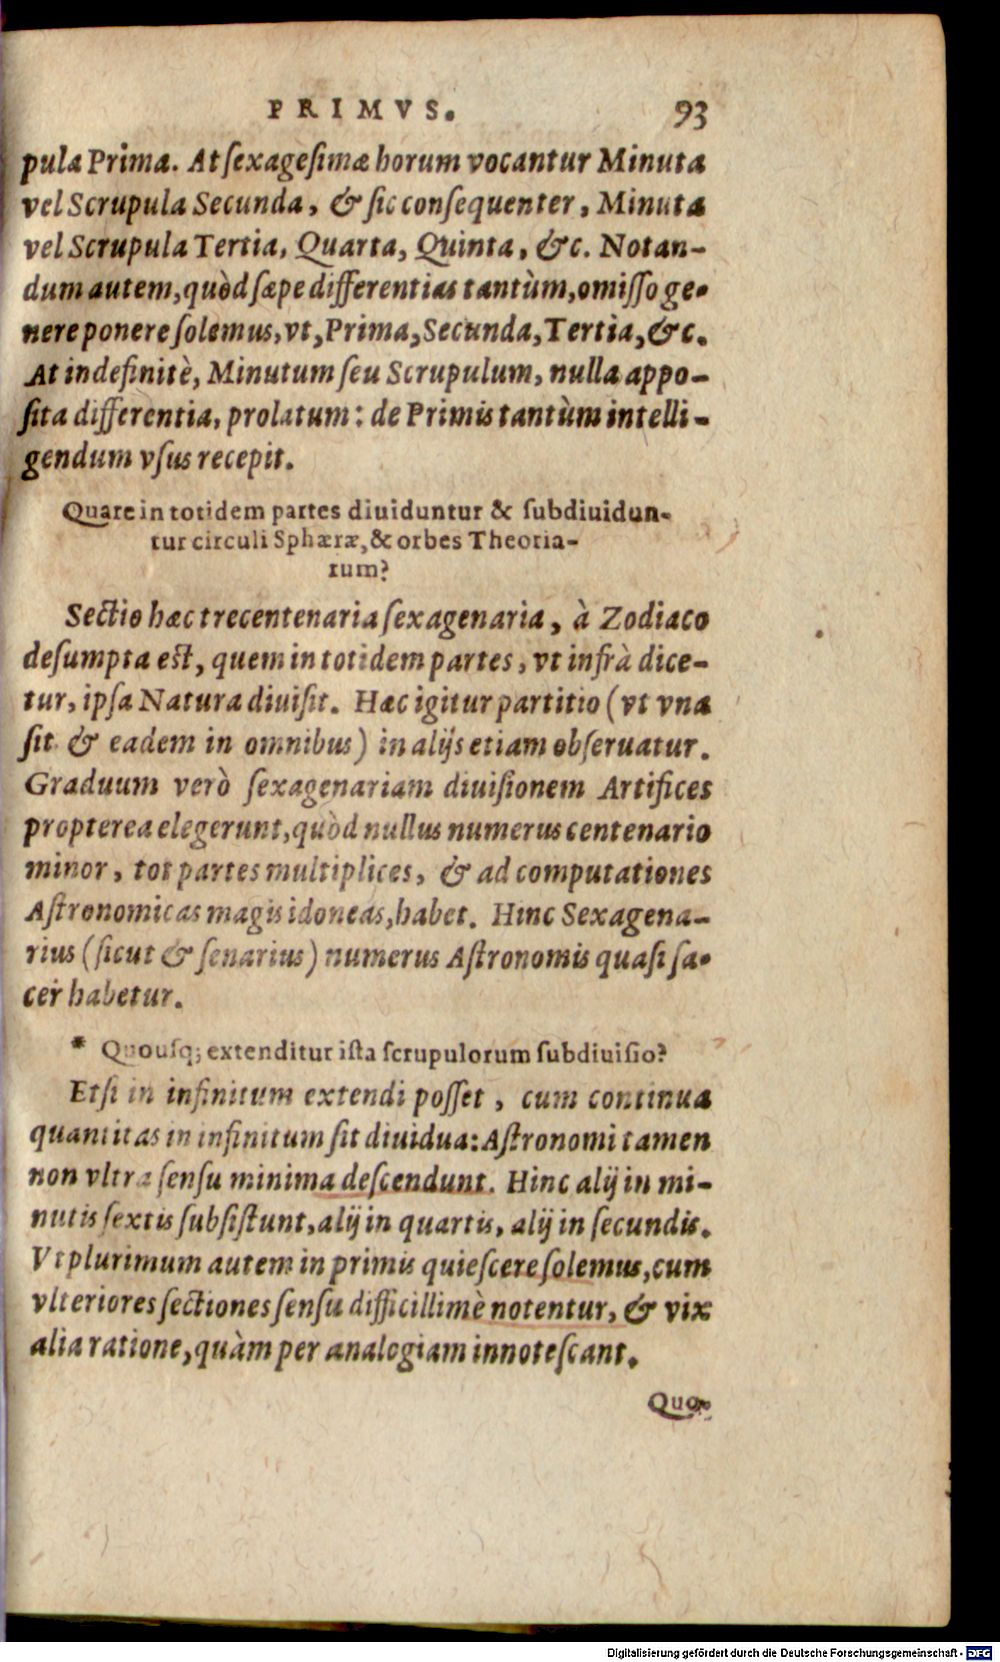 PRIMVS. 93
pula Prima. At sexagesimæ horum vocantur Minuta
vel Scrupula Secunda, & sic consequenter, Minuta
vel Scrupula Tertia, Quarta, Quinta, &c. Notan-
dum autem, quòd sæpe differentias tantùm, omisso ge-
nere ponere solemus, vt, Prima, Secunda, Tertia, &c.
At indefinitè, Minutum seu Scrupulum, nulla appo-
sita differentia, prolatum: de Primis tantùm intelli-
gendum vsus recepit.
Quare in totidem partes diuiduntur & subdiuidun-
tur circuli Sphæræ, & orbes Theoria-
rum?
Sectio hæc trecentenaria sexagenaria, à Zodiaco
desumpta est, quem in totidem partes, vt infrà dice-
tur, ipsa Natura diuisit. Hæc igitur partitio (vt vna
sit & eadem in omnibus) in alijs etiam obseruatur.
Graduum verò sexagenariam diuisionem Artifices
propterea elegerunt, quòd nullus numerus centenario
minor, tot partes multiplices, & ad computationes
Astronomicas magis idoneas, habet. Hinc Sexagena-
rius (sicut & senarius) numerus Astronomis quasi sa-
cer habetur.
* Quousq; extenditur ista scrupulorum subdiuisio?
Etsi in infinitum extendi posset, cum continua
quantitas in infinitum sit diuidua: Astronomi tamen
non vltra sensu minima descendunt. Hinc alij in mi-
nutis sextis subsistunt, alij in quartis, alij in secundis.
Vt plurimum autem in primis quiescere solemus, cum
vlteriores sectiones sensu difficillimè notentur, & vix
alia ratione, quàm per analogiam innotescant.
Quo-
Digitalisierung gefördert durch die Deutsche Forschungsgemeinschaft - DFG